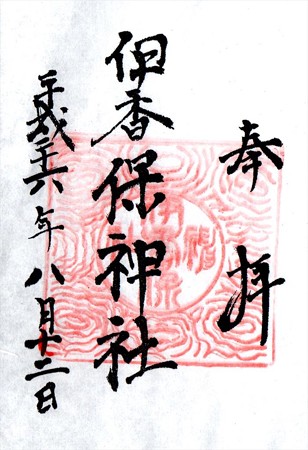 奉拝
伊香保神社
平成二十六年八月十二日